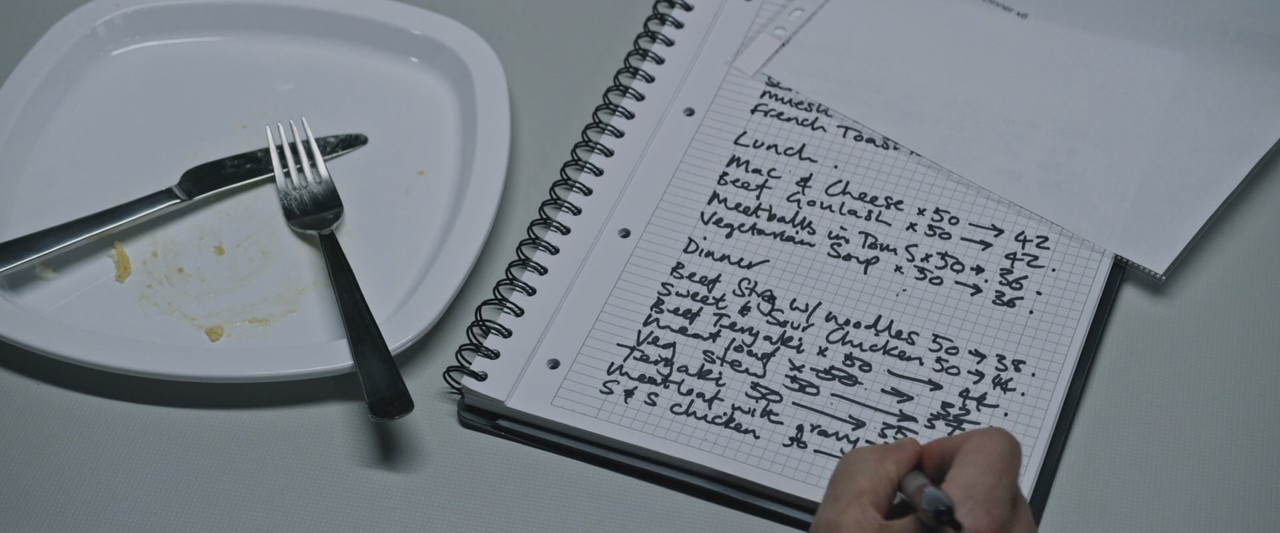 Dinner x6
muesli
French Toast
Lunch.
Mac & Cheese x50 → 42
Beef Goulash x50 → 42.
Meatballs in Tom S x50 → 36.
Vegetarian Soup x 50 → 36.
Dinner
Beef Strog w/ noodles 50 → 38.
Sweet & Sour Chicken 50 → 44.
Beef Teriyaki x 50 → 44.
meatloaf x 50 →
Veg stew 50 →
Teriyaki 50 →
meatloaf with gravy
S & S chicken 50